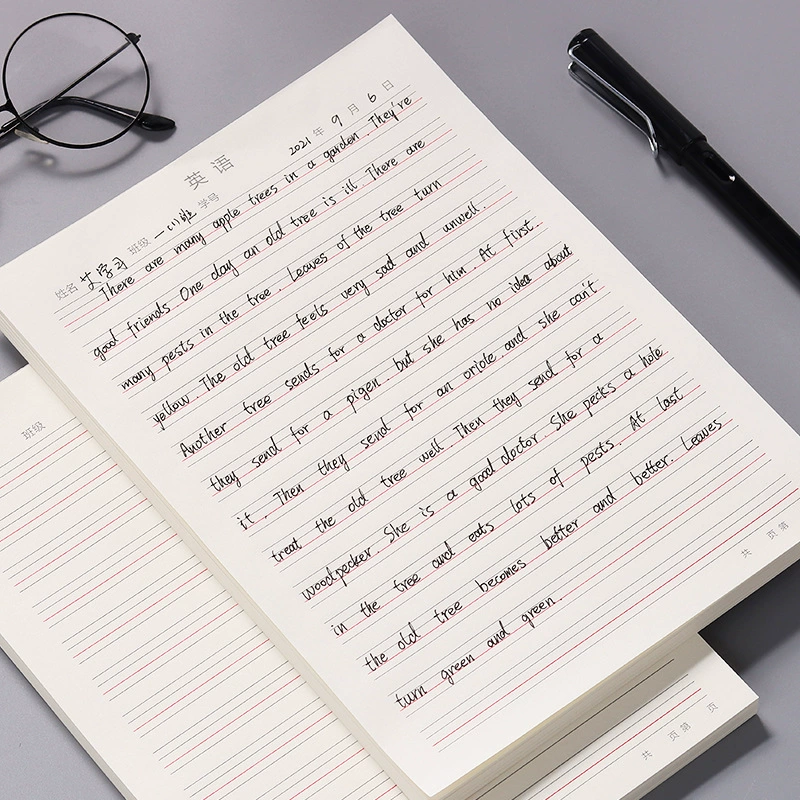 英语
2021年 9月 6日
姓名 艾学习 班级 一(1)班 学号
There are many apple trees in a garden. They're
good friends. One day an old tree is ill. There are
many pests in the tree. Leaves of the tree turn
yellow. The old tree feels very sad and unwell.
Another tree sends for a doctor for him. At first.
they send for a pigen. but she has no idea about
it. Then they send for an oriole. and she can't
treat the old tree well. Then they send for a
woodpecker. She is a good doctor. She pecks a hole
in the tree and eats lots of pests. At last
the old tree becomes better and better. Leaves
turn green and green.
共 页 第
班级
共 页 第 页